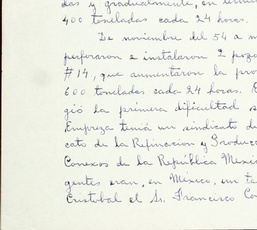 das y gradualmente, en
400 toneladas cada 24 horas.
De noviembre del 54 a m
perforaron e instalaron 2 pozo
#14, que aumentaron la pro
600 toneladas cada 24 horas. E
gió la primera dificultad s
Empreza tenía un sindicato de
cato de la Refinacion y Produc
Conexos de la República Mexic
gentes eran, en México, un ta
Cristobal el Sr. Francisco Con